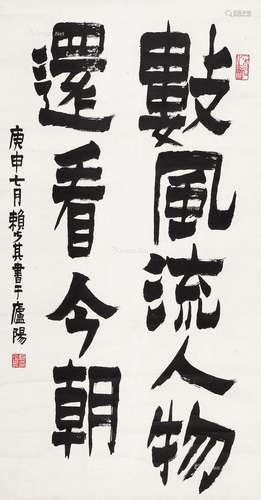 數風流人物
還看今朝
庚申七月賴少其書于廬陽